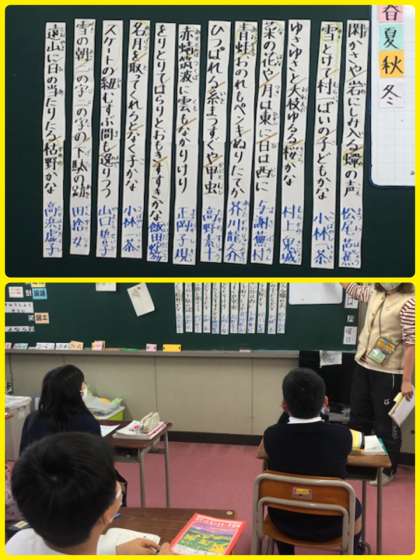 春
夏
秋
冬
閑かさや岩にしみ入る蟬の声 松尾芭蕉
雪とけて村いっぱいの子どもかな 小林一茶
ゆさゆさと大枝ゆるる桜かな 村上鬼城
菜の花や月は東に日は西に 与謝蕪村
青蛙おのれもペンキぬりたてか 芥川龍之介
ひっぱれる糸まっすぐや甲虫 高野素十
赤蜻蛉筑波に雲もなかりけり 正岡子規
をりとりてはらりとおもきすすきかな 飯田蛇笏
名月を取ってくれろとなく子かな 小林一茶
スケートの紐むすぶ間も逸りつつ 山口誓子
雪の朝二の字二の字の下駄の跡 田捨女
遠山に日の当たりたる枯野かな 高浜虚子